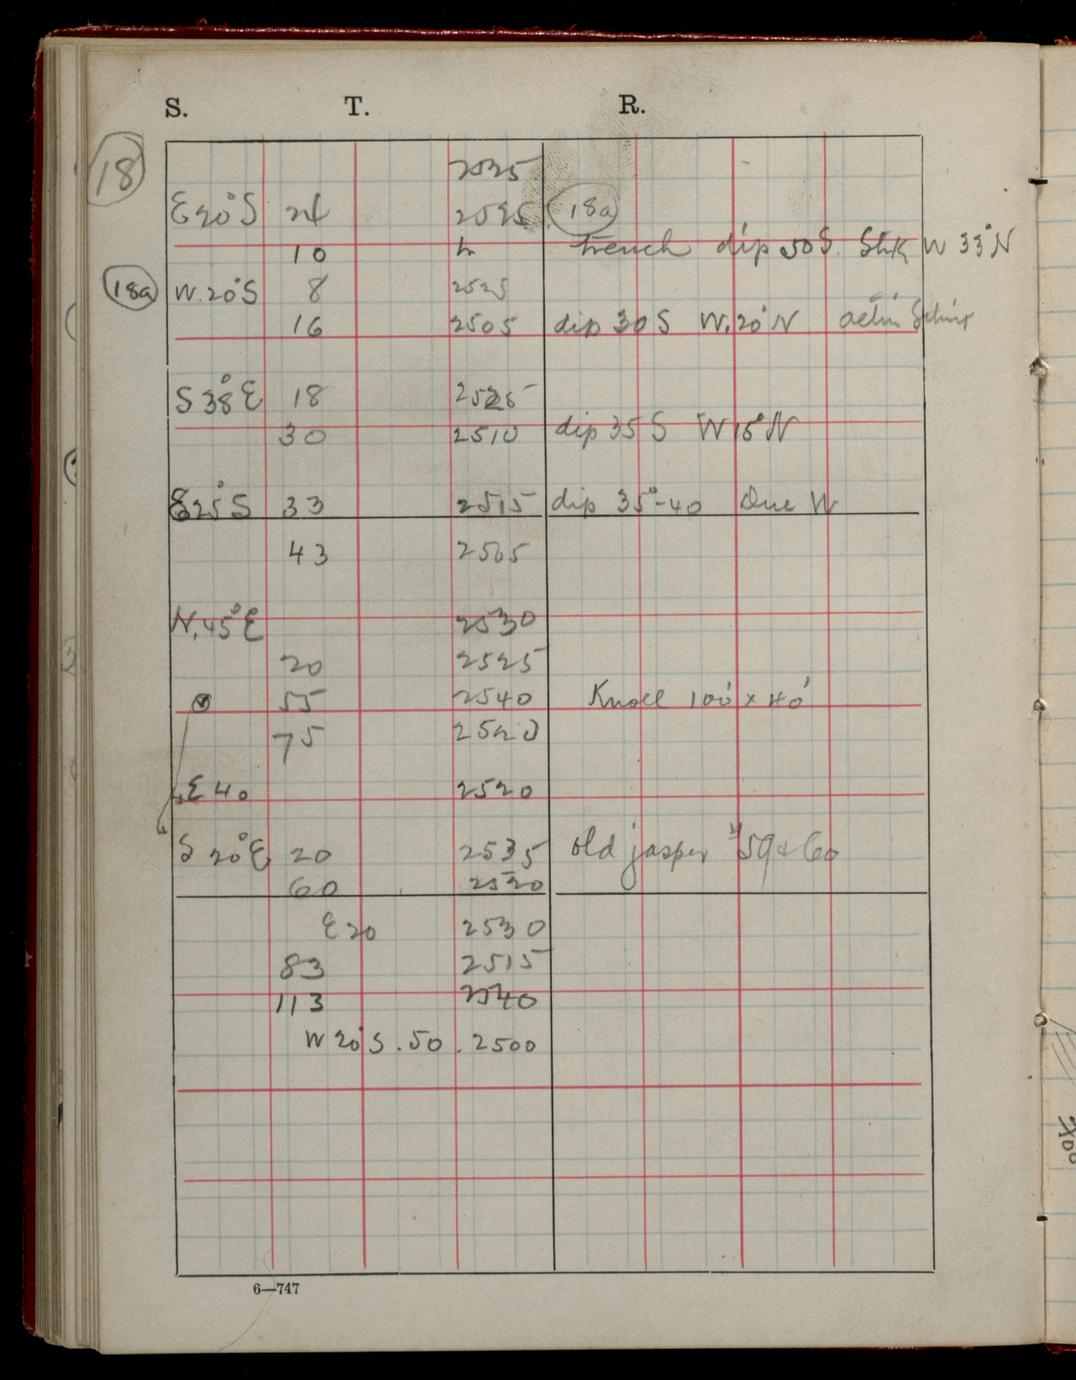 S. T. R.
18 2535
E 20° S 24 2525 18a
10 trench dip 50 S. Stk W 33° N
18a W. 20° S 8 2525
16 2505 dip 30 S W. 20° N
S 38° E 18 2525
30 2510 dip 35 S W 15° N
E 25° S 33 2515 dip 35°-40 Due W
43 2505
N. 45° E 2530
20 2525
55 2540 Knoll 100' x 40'
75 2520
E 40 2520
S 20° E 20 2535 old jasper 59 & 60
60 2520
E 20 2530
83 2515
113 2540
W 20° S. 50. 2500
6—747
200